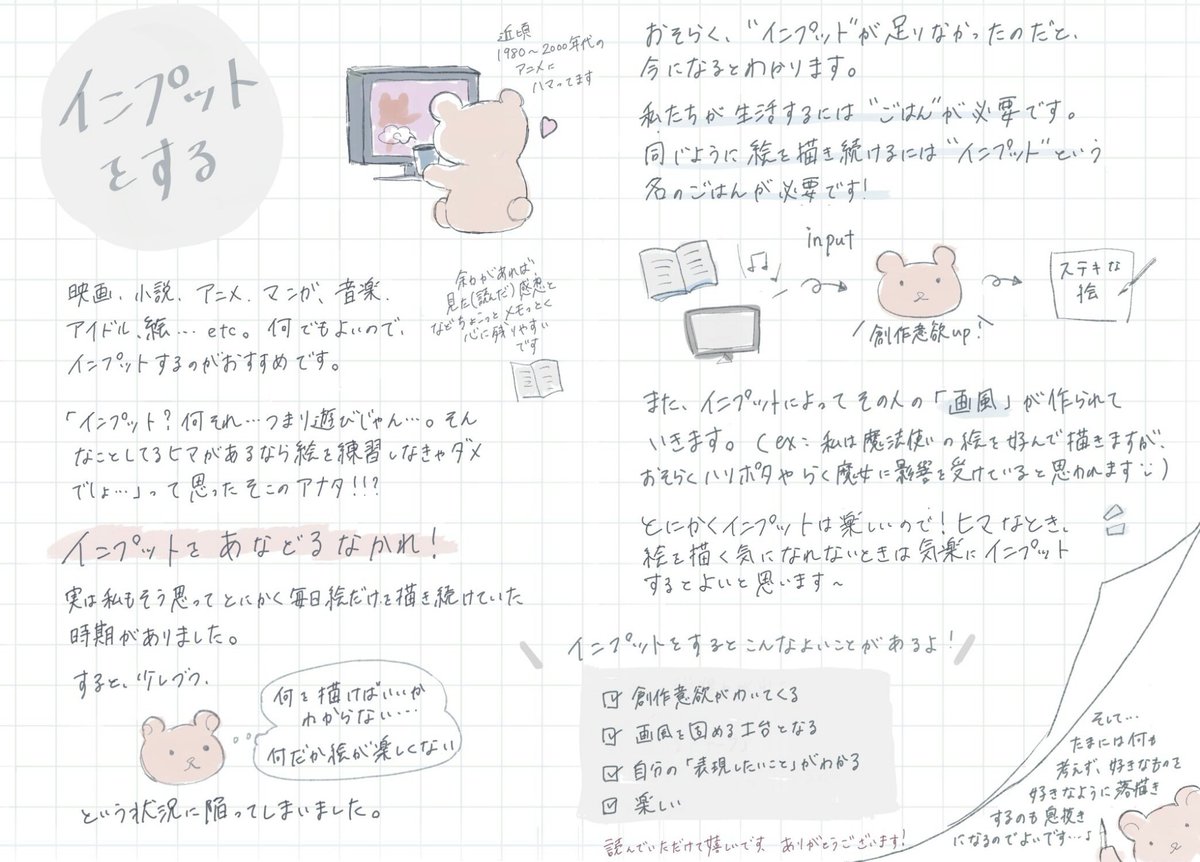 インプット
をする
近頃
1980〜2000年代の
アニメに
ハマってます
映画、小説、アニメ、マンガ、音楽、
アイドル、絵…etc。何でもよいので、
インプットするのがおすすめです。
余力があれば、
見た(読んだ)感想と
などちょこっとメモっとく
心に残りやすい
です
「インプット？何それ…つまり遊びじゃん…。そん
なことしてるヒマがあるなら絵を練習しなきゃダメ
でしょ…」って思ったそこのアナタ!!?
インプットをあなどるなかれ！
実は私もそう思ってとにかく毎日絵だけを描き続けていた
時期がありました。
すると、少しずつ、
何を描けばいいか
わからない…
何だか絵が楽しくない
という状況に陥ってしまいました。
おそらく、“インプット”が足りなかったのだと、
今になるとわかります。
私たちが生活するには“ごはん”が必要です。
同じように絵を描き続けるには“インプット”という
名のごはんが必要です！
input
創作意欲up!
ステキな
絵
また、インプットによってその人の「画風」が作られて
いきます。(ex: 私は魔法使いの絵を好んで描きますが、
おそらくハリポタやらく魔女に影響を受けていると思われます)
とにかくインプットは楽しいので！ヒマなとき、
絵を描く気になれないときは気楽にインプット
するとよいと思います〜
インプットをするとこんなよいことがあるよ！
創作意欲がわいてくる
画風を固める土台となる
自分の「表現したいこと」がわかる
楽しい
読んでいただけて嬉しいです ありがとうございます！
そして…
たまには何も
考えず、好きなものを
好きなように落描き
するのも息抜き
になるのでよいです…♩